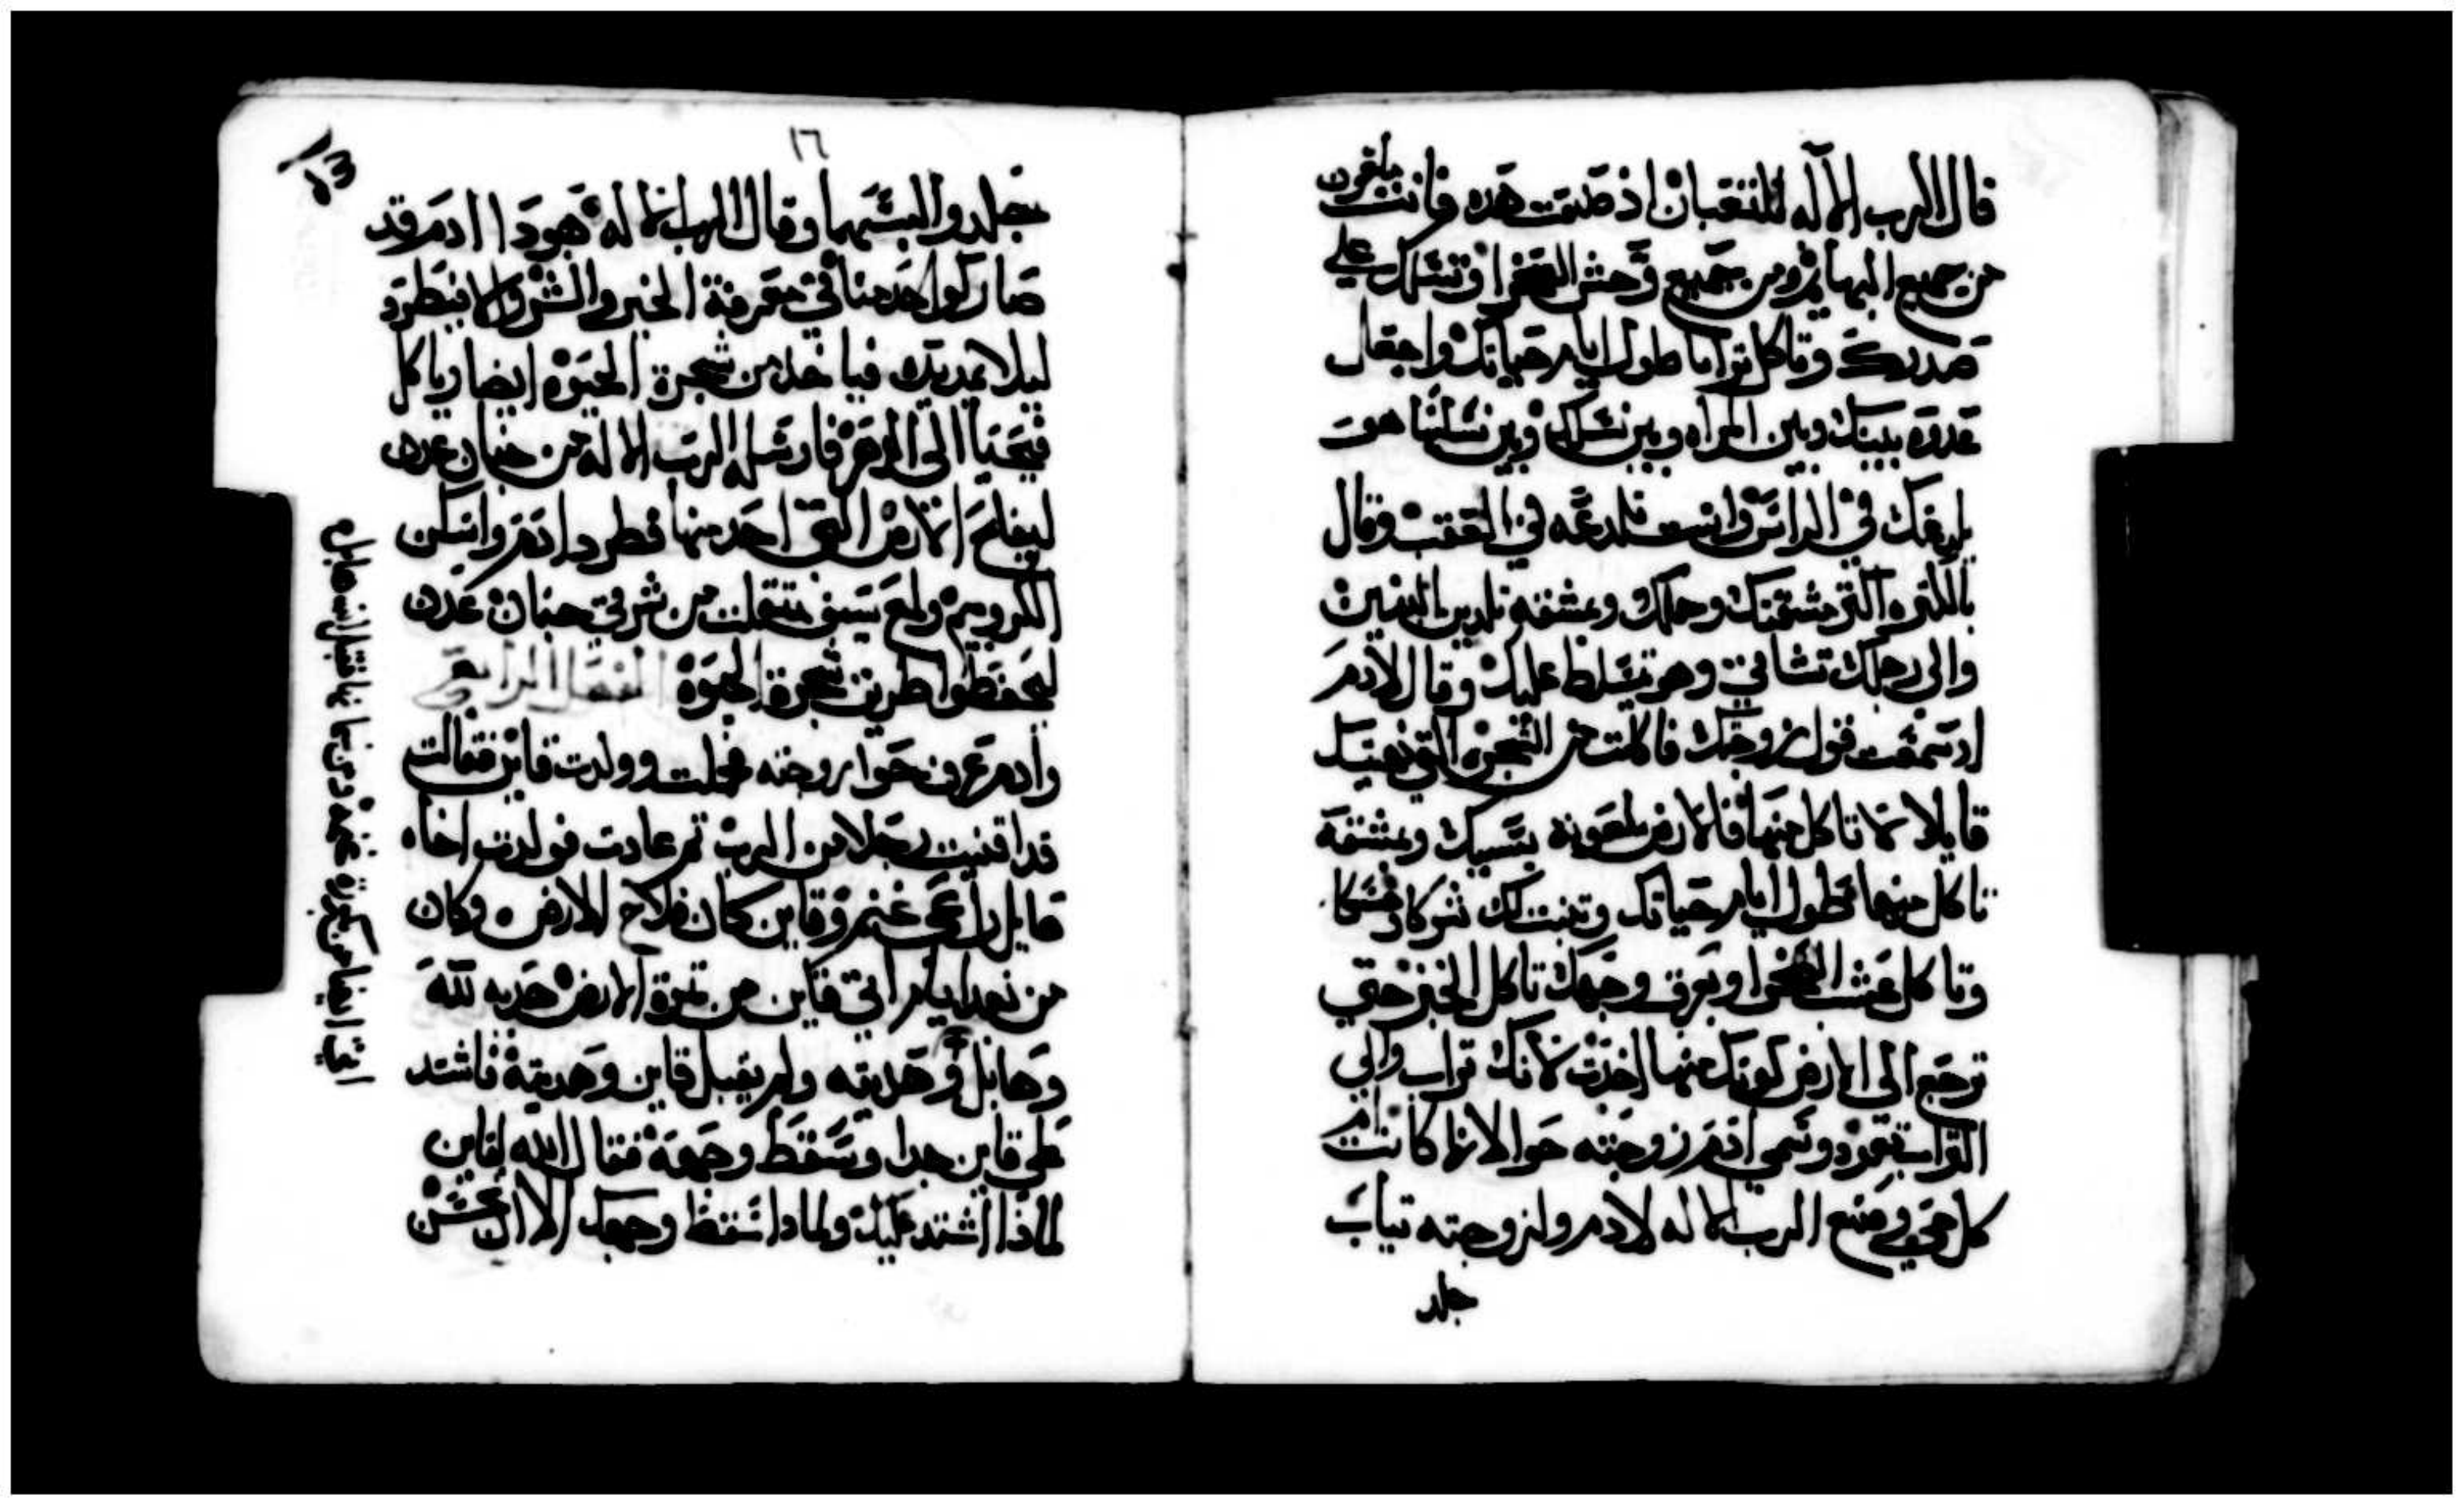 قال الرب الاله للتعبان اذ صنعت هده فانت ملعون
من جميع البهايم ومن جميع وحش الصحرا وتسلك علي
صدرك وتاكل ترابا طول ايام حياتك واجعل
عدوه بينك وبين المراه وبين نسلك وبين نسلها هو
يلدغك في الراس وانت تلدغه في العقب وقال
بالكتره اكتر مشقتك وحملك وبمشقه تلدين البنين
والي رجلك تشاقي وهو يتسلط عليك وقال لادم
اد سمعت قول زوجتك فاكلت من الشجره التي نهيتك
قايلا لا تاكل منها فالارض ملعونه بسببك وبمشقه
تاكل منها طول ايام حياتك وتنبت لك شوكا وحسكا
وتاكل عشب الصحرا وبعرق وجهك تاكل الخبز حتي
ترجع الي الارض كونك منها اخدت لانك تراب والي
التراب تعود وسمي ادم زوجته حوا لانها كانت ام
كل حي وصنع الرب الاله لادم ولزوجته تياب
جلد
١٦
جلد والبسهما وقال الرب الاله هودا ادم قد
صار كواحد منا في معرفة الخير والشر والان يطرد
ليلا يمد يده فياخد من شجرة الحيوه ايضا وياكل
فيحيا الي الدهر فارسله الرب الاله من جنان عدن
ليفلح الارض التي اخد منها فطرد ادم واسكن
الكروبيم ولمع سيف متقلب من شرقي جنان عدن
ليحفظوا طريق شجرة الحيوه الفصل الرابع
وادم عرف حوا زوجته فحبلت وولدت قاين فقالت
قد اقتنيت رجلا من الرب تم عادت فولدت اخاه
هابيل راعي غنم وقاين كان فلاح الارض وكان
من بعد ايام اتي قاين من تمرة الارض هديه لله
وهابل وهديته ولم يقبل قاين وهديته فاشتد
علي قاين جدا وسقط وجهه فقال الله لقاين
لماذا اشتد عليك ولمادا سقط وجهك الا ان تحسن